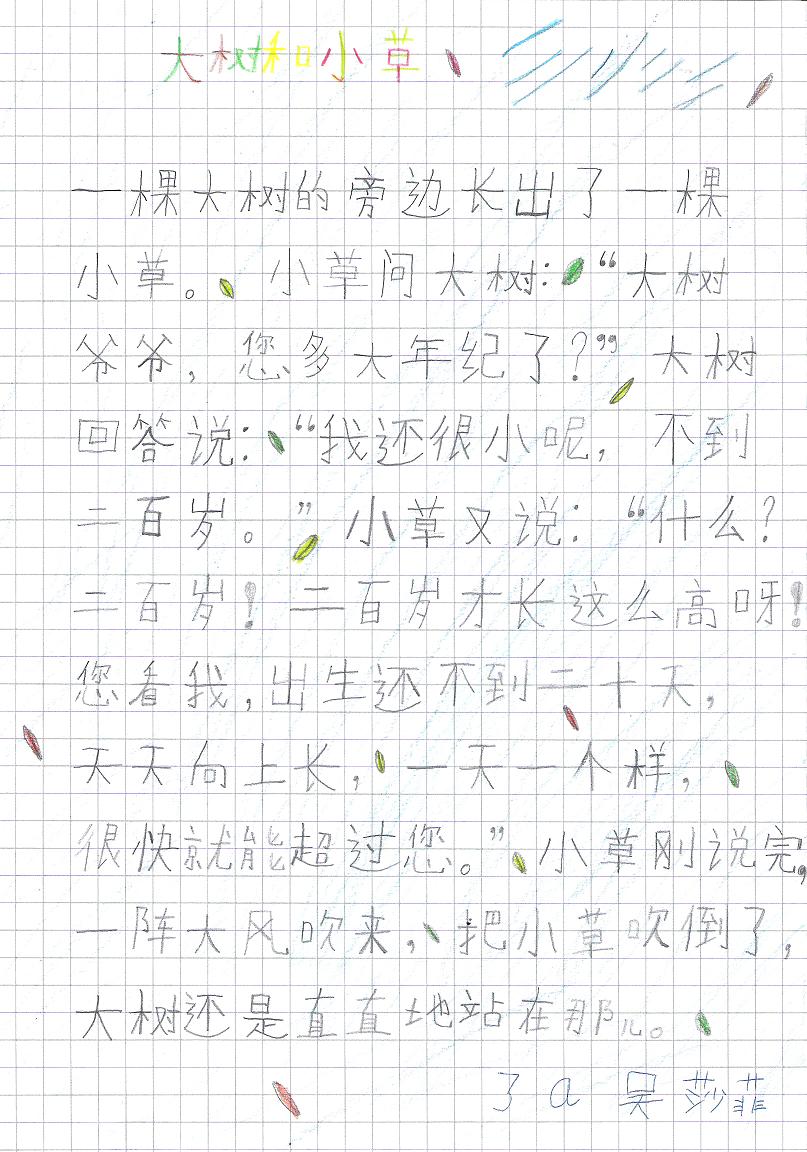 大树和小草
一棵大树的旁边长出了一棵
小草。小草问大树：“大树
爷爷，您多大年纪了？”大树
回答说：“我还很小呢，不到
二百岁。”小草又说：“什么？
二百岁！二百岁才长这么高呀！
您看我，出生还不到二十天，
天天向上长，一天一个样，
很快就能超过您。”小草刚说完，
一阵大风吹来，把小草吹倒了，
大树还是直直地站在那儿。
3a 吴莎菲